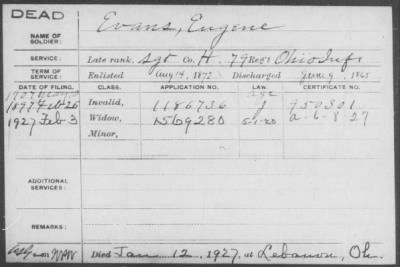 DEAD
NAME OF SOLDIER: Evans, Eugene
SERVICE: Late rank, Sgt Co. H, 79 Reg't Ohio Inf.
TERM OF SERVICE: Enlisted Aug 14, 1872 Discharged June 9, 1865
DATE OF FILING. CLASS. APPLICATION NO. LAW. CERTIFICATE NO.
1897 Feb 26 Invalid, 1186736 950301
1927 Feb 3 Widow, 1569280 5-1-20 a-6-8-27
Minor,
ADDITIONAL SERVICES:
REMARKS:
Died Jan 12, 1927, at Lebanon, Oh.